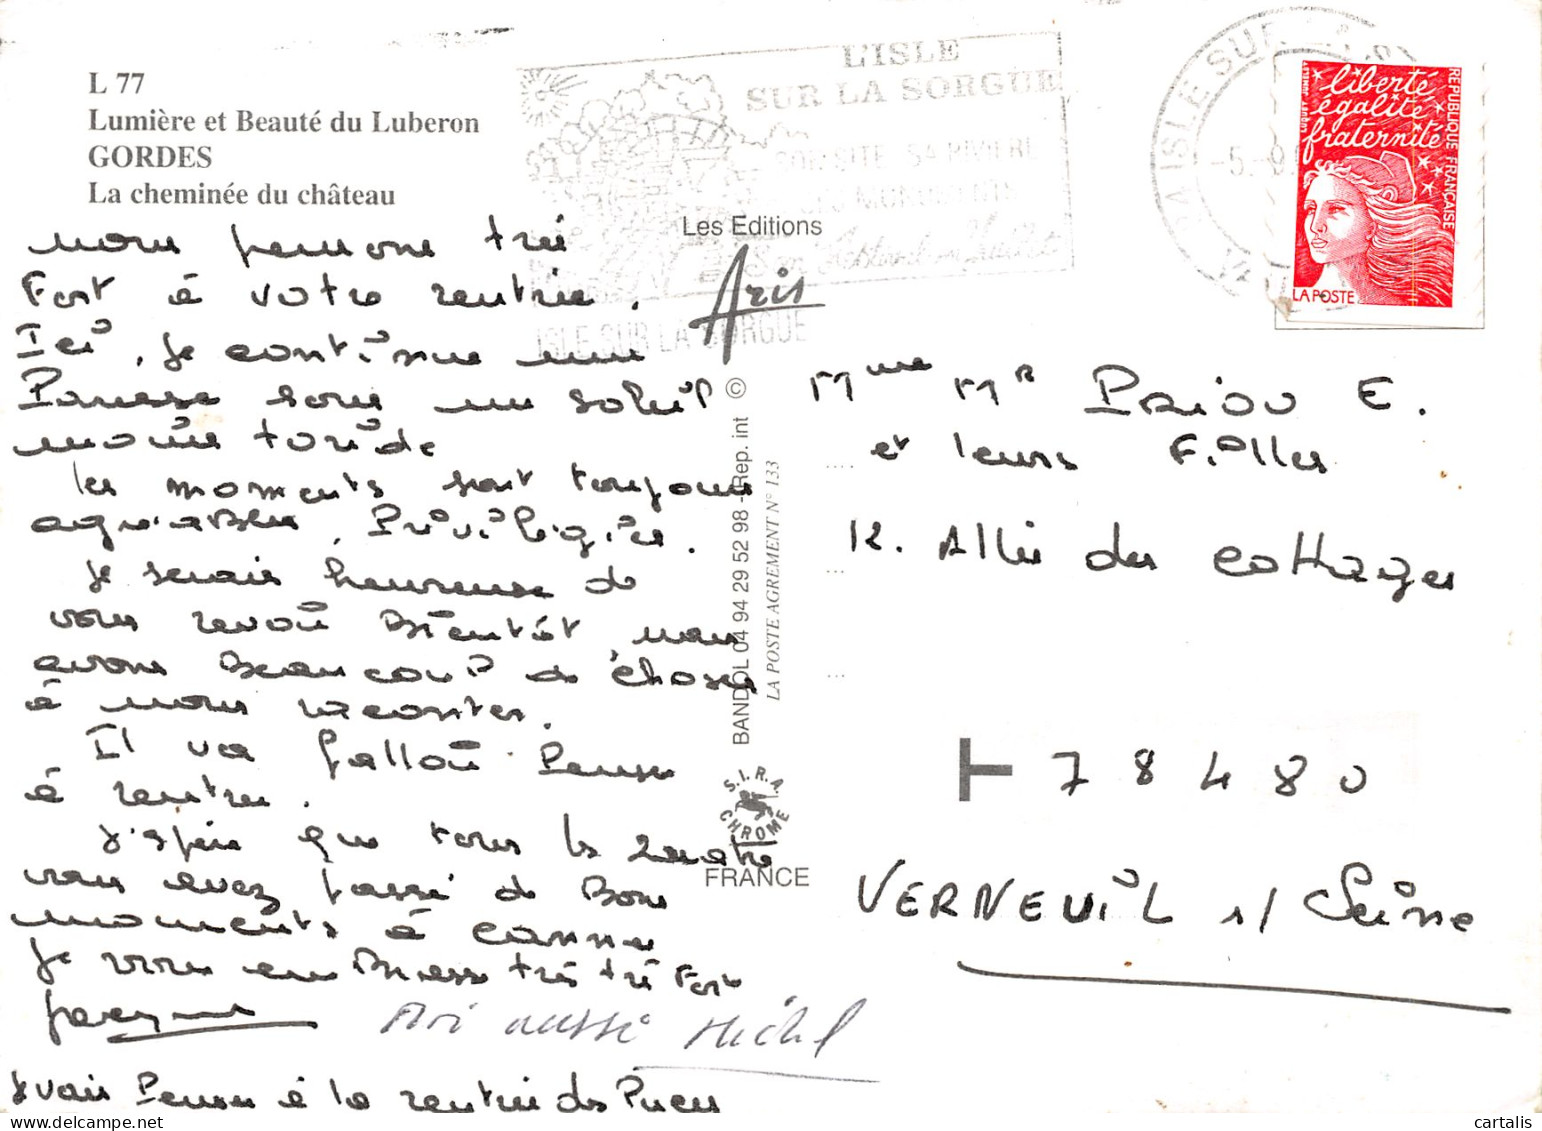 L 77
Lumière et Beauté du Luberon
GORDES
La cheminée du château
nous pensons très
Fort à votre rentrée.
Ici, je continue une
Paresse sous un soleil
moins toride
les moments sont toujours
agréables, Privilégiés.
Je serais heureuse de
vous revoir Bientôt nous
avons Beaucoup de choses
à nous raconter.
Il va falloir Penser
à rentrer.
J'espère que tous les quatre
vous avez passé de Bons
moments à Cannes
Je vous embrasse très très Fort
Jacqueline
Moi aussi Michel
Je vais Penser à la rentrée des Puces
L'ISLE
SUR LA SORGUE
SON SITE SA RIVIERE
SES MONUMENTS
Son Festival en Juillet
ISLE SUR LA SORGUE
Les Editions
Aris
BANDOL 04 94 29 52 98 - Rep. int ©
LA POSTE AGREMENT N° 133
S.I.R.A
CHROME
FRANCE
L'ISLE SUR
VAU
-5.-9
liberté
égalité
fraternité
REPUBLIQUE FRANÇAISE
LA POSTE
Mme Mr Priou E.
et leurs Filles
12. Allée des Cottages
78480
VERNEUIL s/ Seine
cartalis
delcampe.net